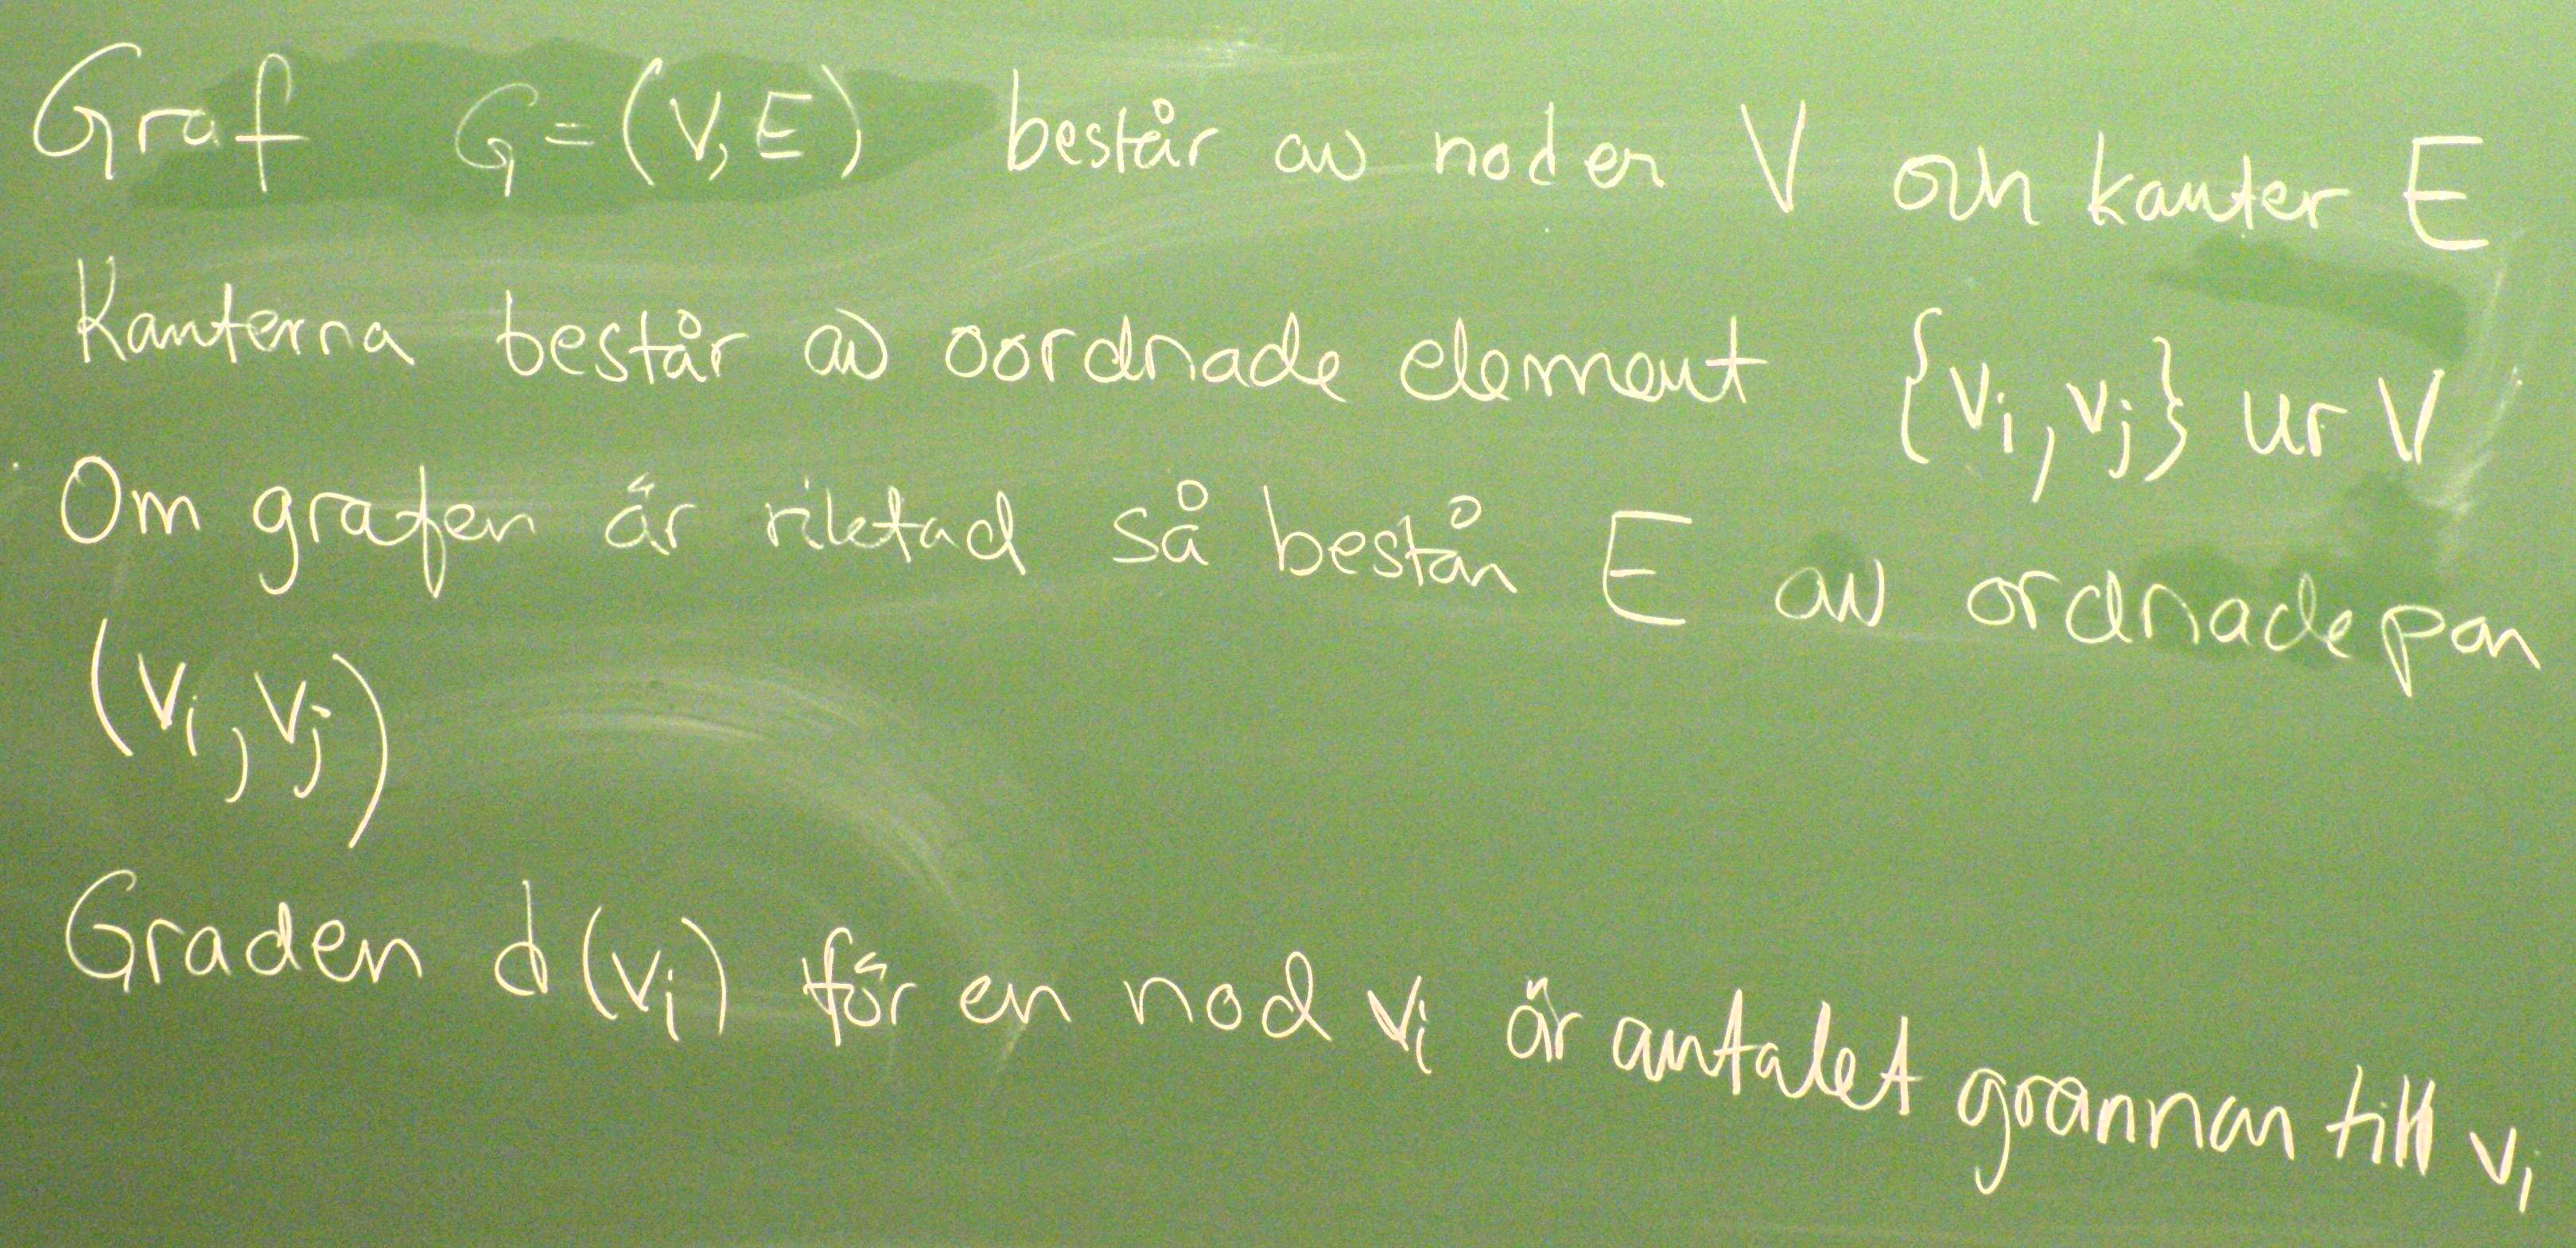 Graf G=(V,E) består av noder V och kanter E
Kanterna består av oordnade element {vi, vj} ur V
Om grafen är riktad så består E av ordnade par
(vi, vj)
Graden d(vi) för en nod vi är antalet grannar till vi